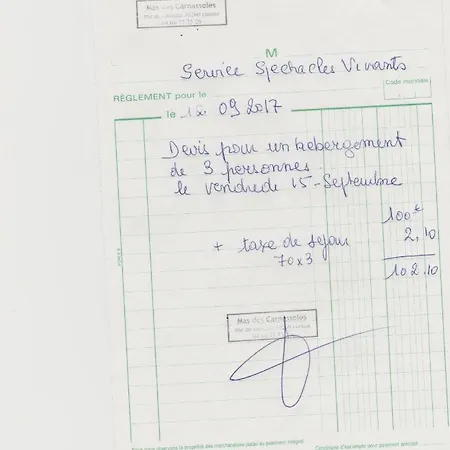 Mas des Carnassoles
M
Service Spectacles Vivants
Code monnaie
RÈGLEMENT pour le
le 12. 09 2017
Devis pour un hebergement
de 3 personnes
le vendrede 15 - Septembre
100€
+ taxe de sejour 2,10
70x3
102.10
Mas des Carnassoles